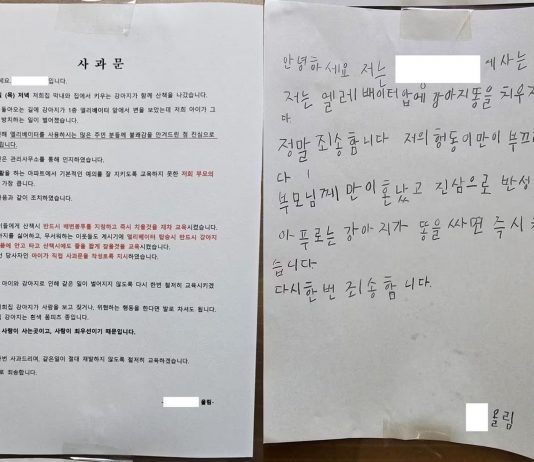 사 과 문
입니다.
(목) 저녁 저희집 막내와 집에서 키우는 강아지가 함께 산책을 나갔습니다.
돌아오는 길에 강아지가 1층 엘리베이터 앞에서 변을 보았는데 저희 아이가 그
방치하는 일이 벌어졌습니다.
엘리베이터를 사용하시는 많은 주민 분들께 불쾌감을 안겨드린 점 진심으로
은 관리사무소를 통해 인지하였습니다.
활을 하는 아파트에서 기본적인 예의를 잘 지키도록 교육하지 못한 저희 부모의
가장 큽니다.
같이 조치하였습니다.
들에게 산책시 반드시 배변봉투를 지참하고 즉시 치울것을 재차 교육시켰습니다.
지를 싫어하고, 무서워하는 이웃들도 계시기에 엘리베이터 탑승시 반드시 강아지
품에 안고 타고 산책시에도 줄을 짧게 잡을것을 교육시켰습니다.
당사자인 아이가 직접 사과문을 작성토록 지시하였습니다.
아이와 강아지로 인해 같은 일이 벌어지지 않도록 다시 한번 철저히 교육시키겠
희집 강아지가 사람을 보고 짖거나, 위협하는 행동을 한다면 발로 차셔도 됩니다.
강아지는 흰색 폼피츠 종입니다.
사람이 사는곳이고, 사람이 최우선이기 때문입니다.
한번 사과드리며, 같은일이 절대 재발하지 않도록 철저히 교육하겠습니다.
로 죄송합니다.
올림-
안녕하세요 저는 에사는
저는 엘레베이터앞에 강아지똥을 치우지
다
정말 죄송합니다 저의 행동이만이 부끄
다!
부모님께 만이혼났고 진심으로 반성
아푸로는 강아지가 똥을 싸면 즉시
습니다
다시한번 죄송합니다.
올림